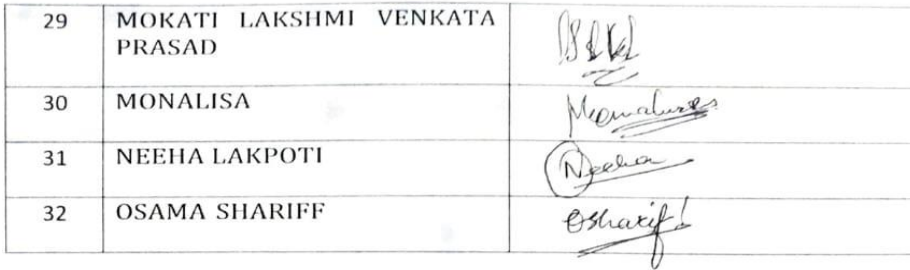 29 MOKATI LAKSHMI VENKATA
PRASAD
30 MONALISA Monalisa
31 NEEHA LAKPOTI Neeha
32 OSAMA SHARIFF OSharif!